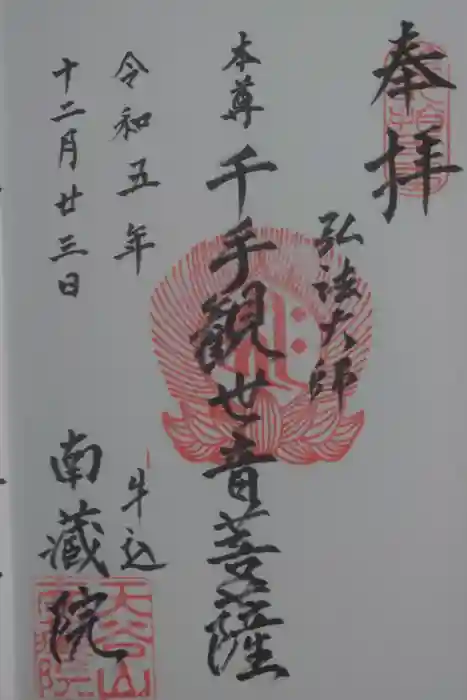 奉拝
弘法大師
本尊
千手観世音菩薩
令和五年
十二月廿三日
牛込
南蔵院